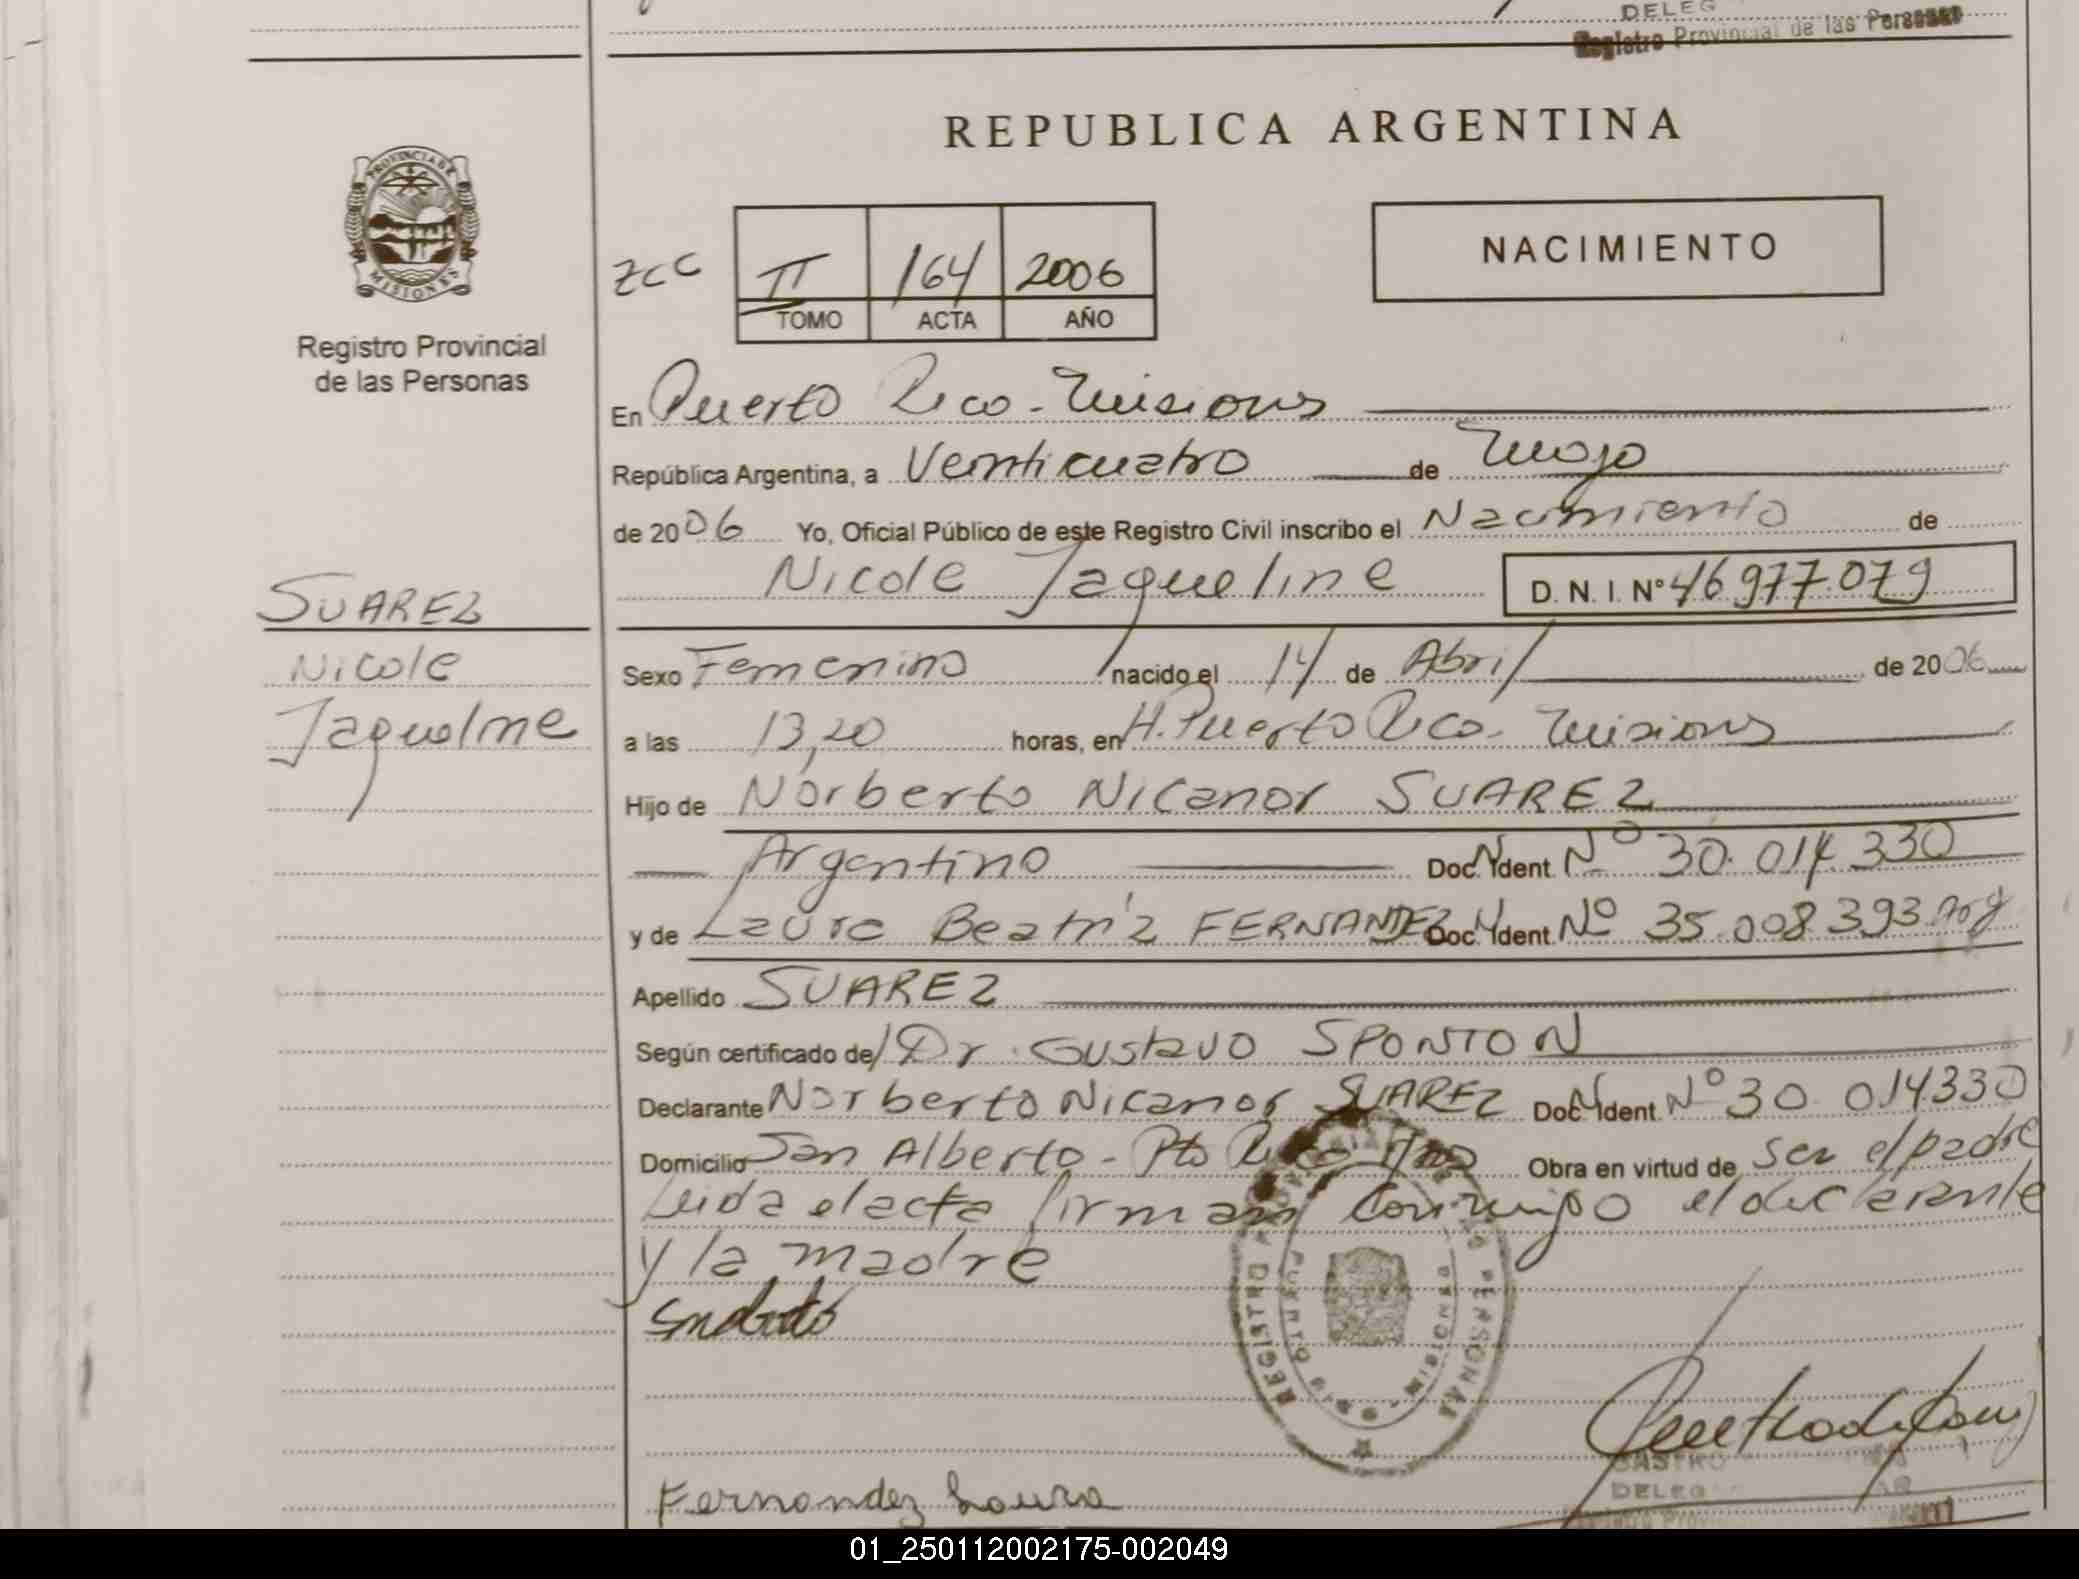 DELEG
Registro Provincial de las Personas
REPUBLICA ARGENTINA
PROVINCIA DE
MISIONES
Registro Provincial
de las Personas
NACIMIENTO
ZCC
II 164 2006
TOMO ACTA AÑO
En Puerto Rico - Misiones
República Argentina, a Veinticuatro de Mayo
de 2006 Yo, Oficial Público de este Registro Civil inscribo el Nacimiento de
Nicole Jaqueline D. N. I. Nº 46977.079
SUAREZ
Nicole
Jaqueline
Sexo Femenino nacido el 14 de Abril de 2006
a las 13,20 horas, en H. Puerto Rico - Misiones
Hijo de Norberto Nicanor SUAREZ
Argentino Doc. Ident. Nº 30.014.330
y de Laura Beatriz FERNANDEZ Doc. Ident. Nº 35.008.393 Arg
Apellido SUAREZ
Según certificado de/ Dr. Gustavo SPONTON
Declarante Norberto Nicanor SUAREZ Doc. Ident. Nº 30 014330
Domicilio San Alberto - Pto Rico Mnes Obra en virtud de ser el padre
Leida el acta firman conmigo el declarante
y la madre
REGISTRO PERSONAS
PUERTO RICO MISIONES
CASTRO
DELEG
Fernandez Laura
01_250112002175-002049